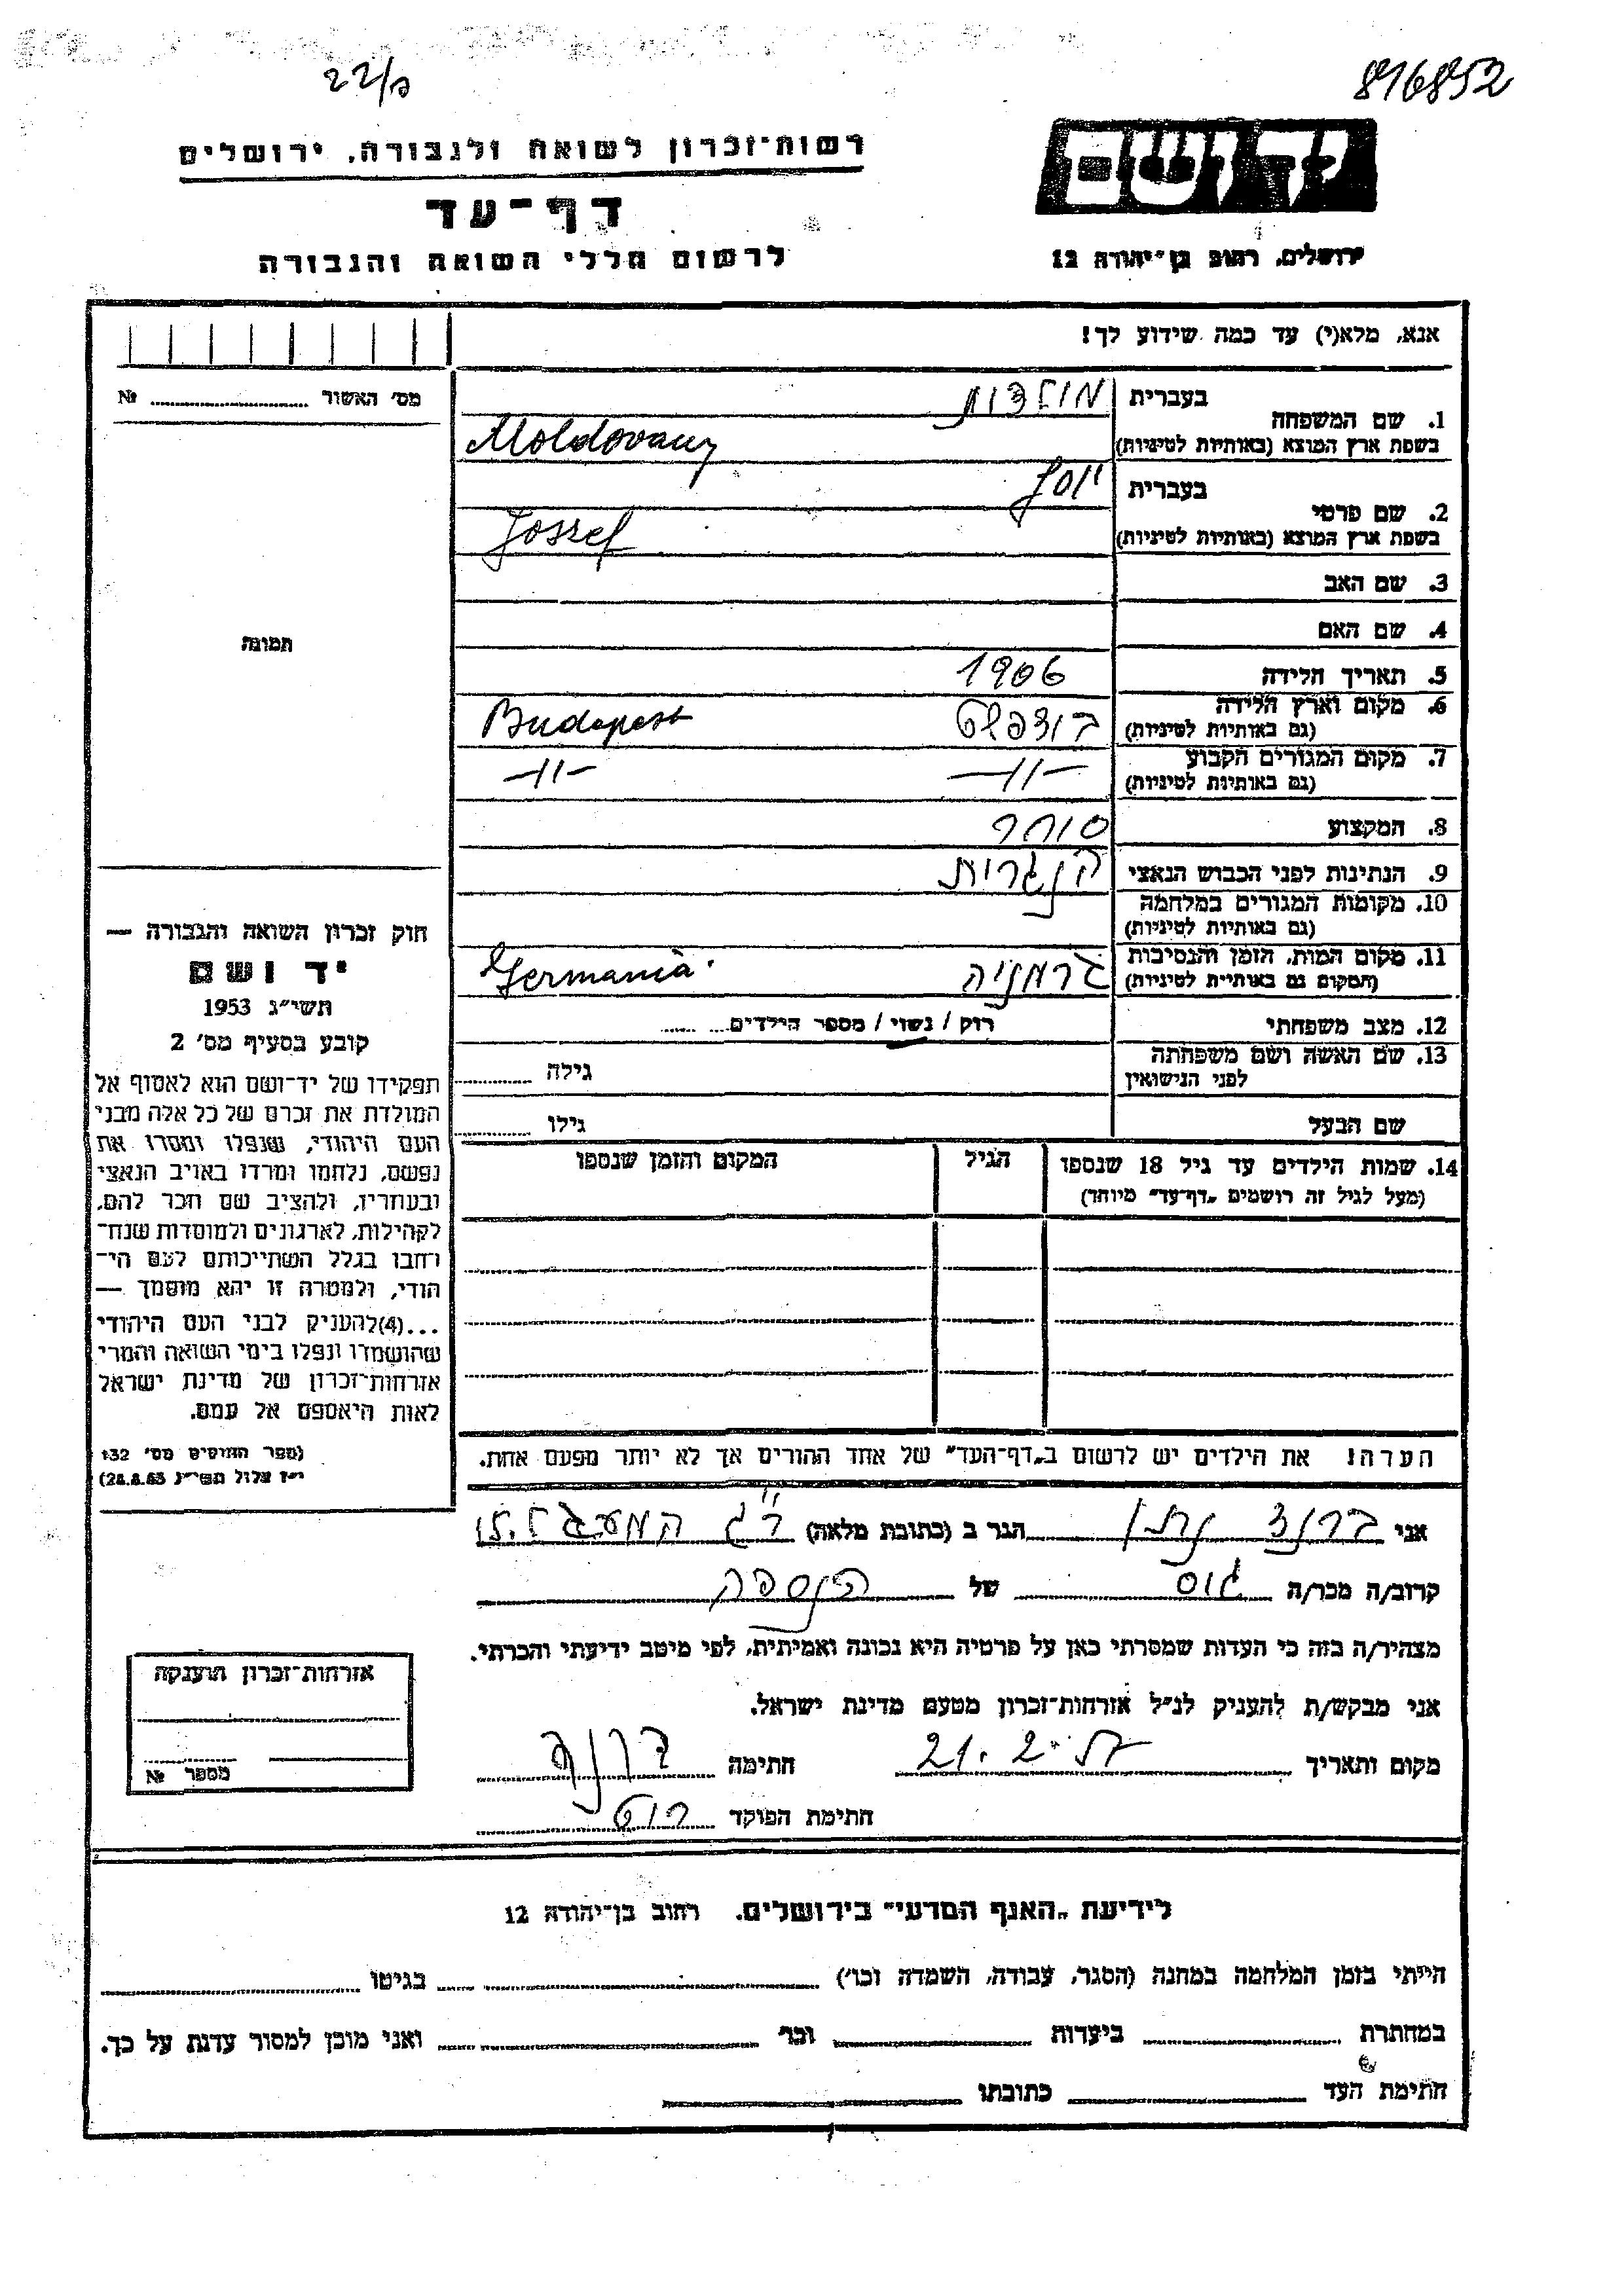 22/מ
816852
רשות־זכרון לשואה ולגבורה, ירושלים
יד ושם
דף־עד
לרשום חללי השואה והגבורה
ירושלים, רחוב בן־יהודה 12
אנא, מלא(י) עד כמה שידוע לך!
מס׳ האשור № 
1. שם המשפחה
בעברית
בשפת ארץ המוצא (באותיות לטיניות) Moldovany
2. שם פרטי
בעברית יוסף
בשפת ארץ המוצא (באותיות לטיניות) Jossef
3. שם האב
4. שם האם
תמונה
5. תאריך הלידה 1906
6. מקום וארץ הלידה (גם באותיות לטיניות) בודפשט Budapest
7. מקום המגורים הקבוע (גם באותיות לטיניות) —11— —11—
8. המקצוע סוחר
9. הנתינות לפני הכבוש הנאצי הנגרית
10. מקומות המגורים במלחמה (גם באותיות לטיניות)
11. מקום המות, הזמן והנסיבות (המקום גם באותיות לטיניות) גרמניה Germania
12. מצב משפחתי רוק / נשוי / מספר הילדים
13. שם האשה ושם משפחתה לפני הנישואין גילה
שם הבעל גילו
14. שמות הילדים עד גיל 18 שנספו
(מעל לגיל זה רושמים „דף־עד״ מיוחד)
הגיל
המקום והזמן שנספו
חוק זכרון השואה והגבורה —
יד ושם
תשי״ג 1953
קובע בסעיף מס׳ 2
תפקידו של יד־ושם הוא לאסוף אל
המולדת את זכרם של כל אלה מבני
העם היהודי, שנפלו ומסרו את
נפשם, נלחמו ומרדו באויב הנאצי
ובעוזריו, ולהציב שם וזכר להם,
לקהילות, לארגונים ולמוסדות שנח־
רבו בגלל השתייכותם לעם הי־
הודי, ולמטרה זו יהא מוסמך —
...(4)להעניק לבני העם היהודי
שהושמדו ונפלו בימי השואה והמרי
אזרחות־זכרון של מדינת ישראל
לאות היאספם אל עמם.
(ספר החוקים מס׳ 132
י״ז אלול תשי״ג 28.8.53)
הערה: את הילדים יש לרשום ב„דף־העד״ של אחד ההורים אך לא יותר מפעם אחת.
אני הגר ב (כתובת מלאה) ר״ג
קרוב/ה מכר/ה גיס של הנספה
מצהיר/ה בזה כי העדות שמסרתי כאן על פרטיה היא נכונה ואמיתית, לפי מיטב ידיעתי והכרתי.
אני מבקש/ת להעניק לנ״ל אזרחות־זכרון מטעם מדינת ישראל.
מקום ותאריך 21.2. חתימה
חתימת הפוקד
אזרחות־זכרון הוענקה
מספר №
לידיעת „האגף המדעי״ בירושלים, רחוב בן־יהודה 12
הייתי בזמן המלחמה במחנה (הסגר, עבודה, השמדה וכו׳) בגיטו
במחתרת ביערות וכו׳ ואני מוכן למסור עדות על כך.
חתימת העד כתובתו